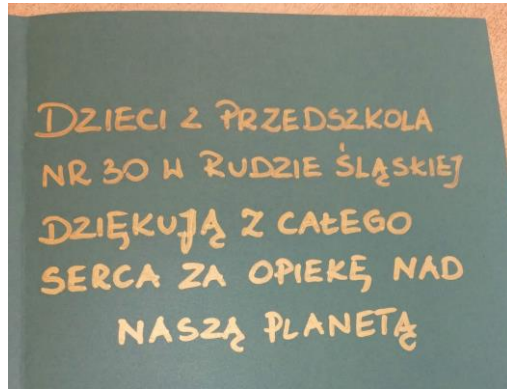 DZIECI Z PRZEDSZKOLA
NR 30 W RUDZIE ŚLĄSKIEJ
DZIĘKUJĄ Z CAŁEGO
SERCA ZA OPIEKĘ NAD
NASZĄ PLANETĄ